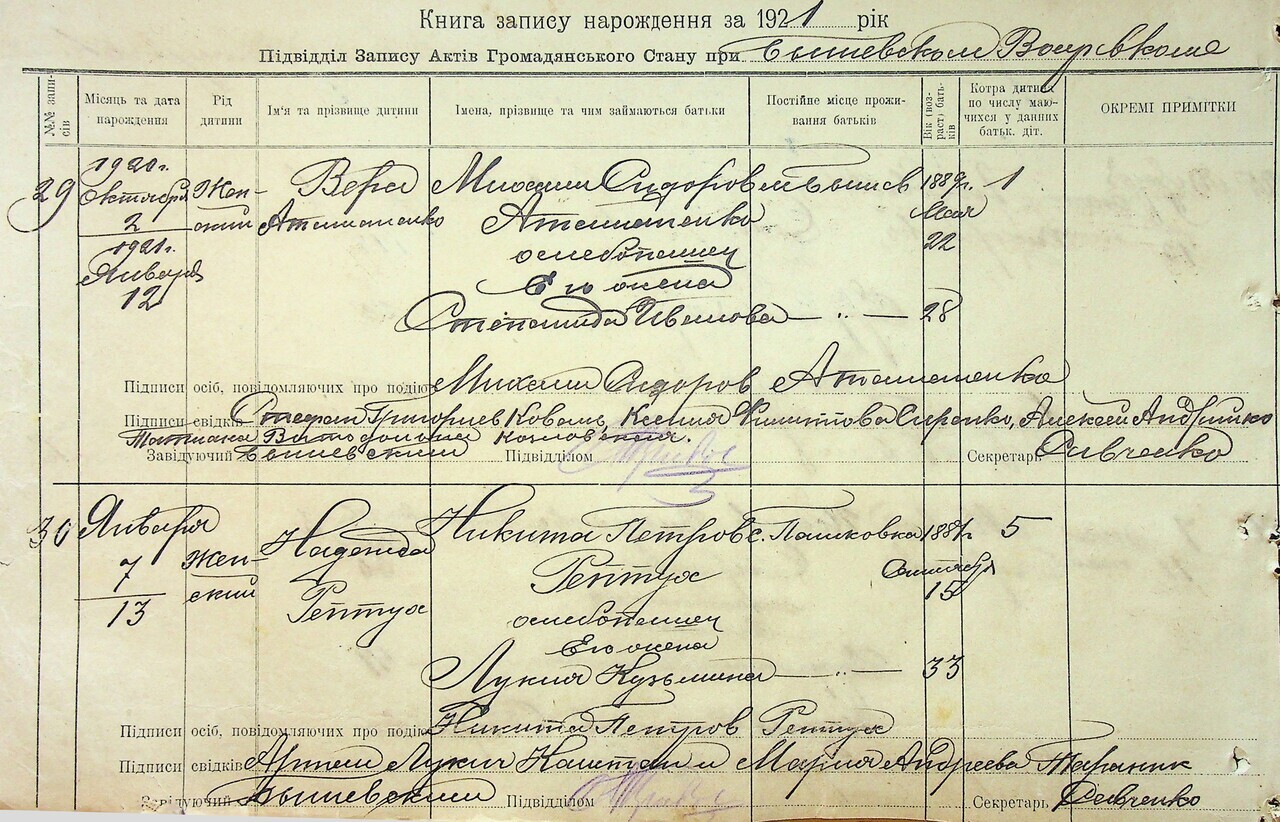 Книга запису народження за 1921 рік
Підвідділ Запису Актів Громадянського Стану при Бышевском Волревкоме
№№ записів
Місяць та дата народження
Рід дитини
Ім'я та прізвище дитини
Імена, прізвище та чим займаються батьки
Постійне місце проживання батьків
Вік (возраст) батьків
Котра дитина по числу маючихся у данных батьк. діт.
ОКРЕМІ ПРИМІТКИ
29
1920 г.
Октября
2
1921 г.
Января
12
Женский
Вера
Атаманенко
Михаил Сидоров
Атаманенко
хлебопашец
Его жена
Степанида Иванова
м. Бышев
— „ —
1889 г.
Мая
22
28
1
Підписи осіб, повідомляючих про подію Михаил Сидоров Атаманенко
Підписи свідків Стефан Григориев Коваль, Ксения Филиппова Сиренко, Алексей Андрийко
Татиана
Завідуючий Бышевский Підвідділом Секретарь Савченко
30
Января
7
13
Женский
Надежда
Рептух
Никита Петров
Рептух
хлебопашец
Его жена
Лукия Кузьмина
с. Пашковка
— „ —
1881 г.
Сентября
15
33
5
Підписи осіб, повідомляючих про подію Никита Петров Рептух
Підписи свідків Артем Лукич Каштан и Мария Андреева Тараник
Завідуючий Бышевский Підвідділом Секретарь Савченко